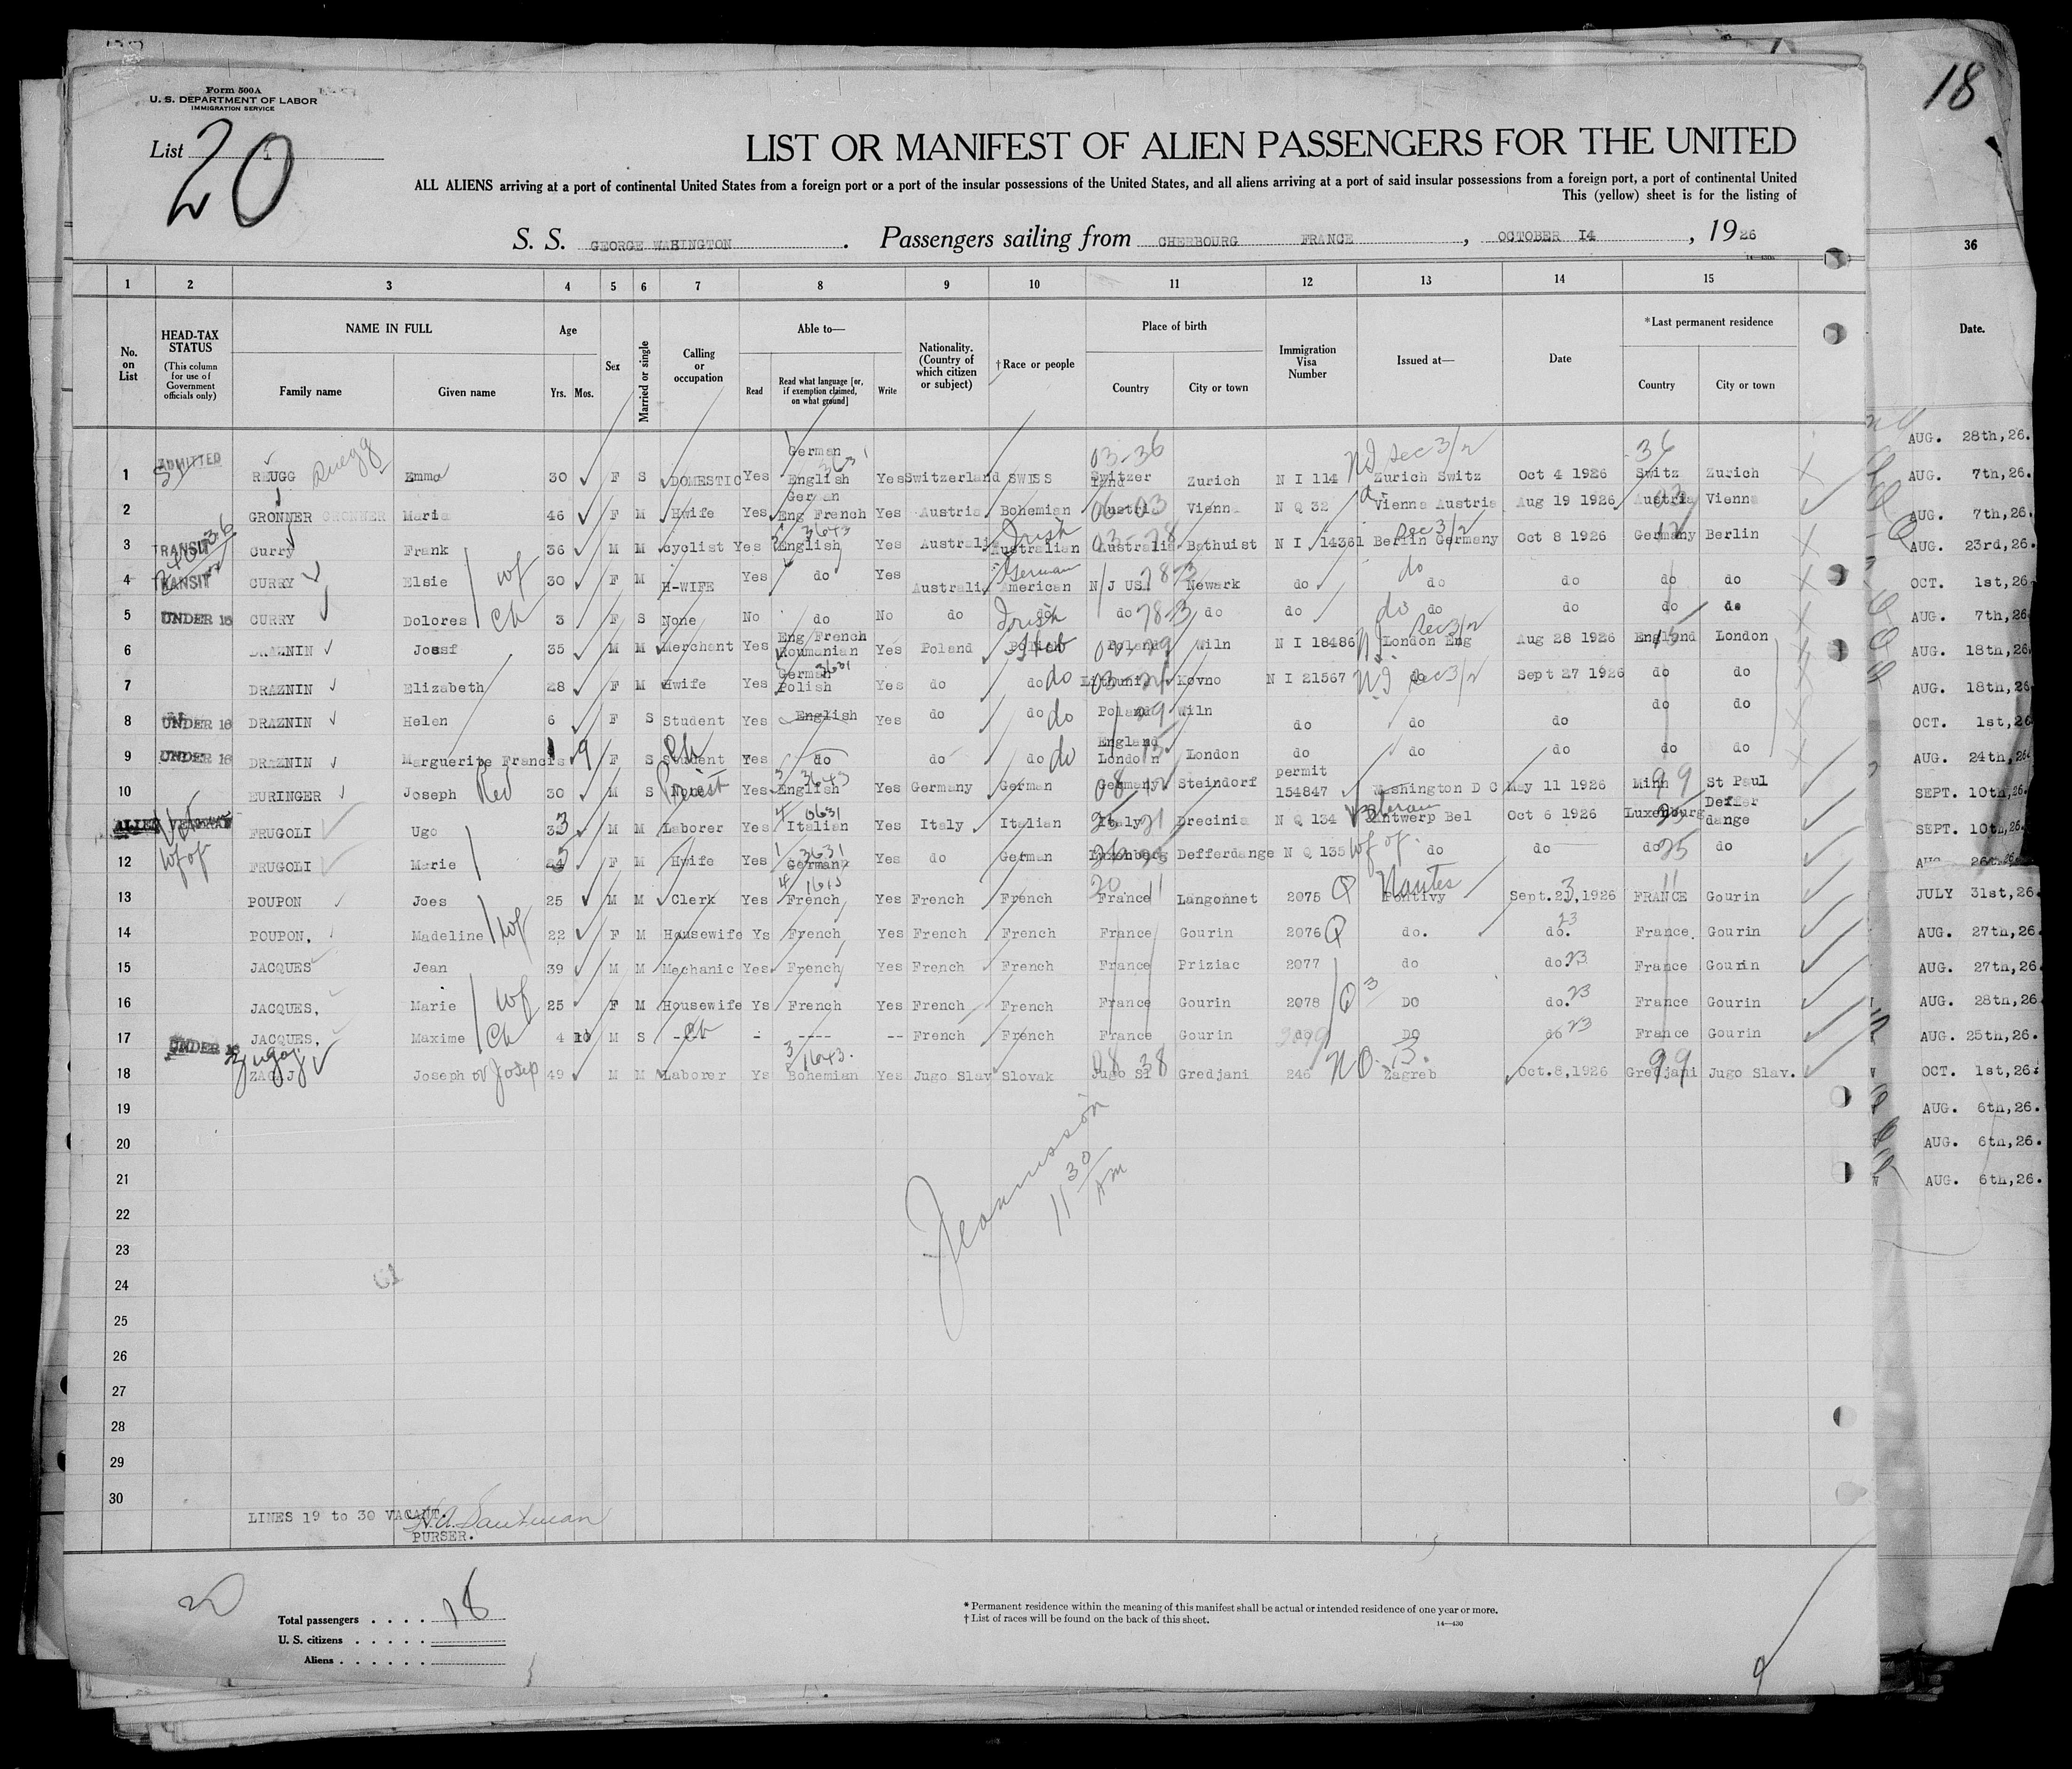 18
Form 500A
U. S. DEPARTMENT OF LABOR
IMMIGRATION SERVICE
List 20
LIST OR MANIFEST OF ALIEN PASSENGERS FOR THE UNITED
ALL ALIENS arriving at a port of continental United States from a foreign port or a port of the insular possessions of the United States, and all aliens arriving at a port of said insular possessions from a foreign port, a port of continental United
This (yellow) sheet is for the listing of
S. S. GEORGE WAHINGTON . Passengers sailing from CHERBOURG FRANCE , OCTOBER I4 , 1926
36
1 2 3 4 5 6 7 8 9 10 11 12 13 14 15
No. on List
HEAD-TAX STATUS
(This column for use of Government officials only)
NAME IN FULL
Family name Given name
Age
Yrs. Mos.
Sex
Married or single
Calling or occupation
Able to—
Read Read what language [or, if exemption claimed, on what ground] Write
Nationality. (Country of which citizen or subject)
†Race or people
Place of birth
Country City or town
Immigration Visa Number
Issued at—
Date
*Last permanent residence
Country City or town
Date.
1 ADMITTED REUGG Ruegg Emma 30 F S DOMESTIC Yes German English 3631 Yes Switzerland SWISS 03-36 Switzer land Zurich N I 114 NI Sec 3/2 Zurich Switz Oct 4 1926 36 Switz Zurich
2 GRONNER GRONNER Maria 46 F M Hwife Yes German Eng French Yes Austria Bohemian Austria 03 Vienna N Q 32 Vienna Austria Aug 19 1926 Austria 03 Vienna
3 TRANSIT Curry Frank 36 M M cyclist Yes English 3643 Yes Australia Australian Irish Australia Bathuist N I 14361 Berlin Germany Sec 3/2 Oct 8 1926 Germany 12 Berlin
4 TRANSIT CURRY Elsie wf 30 F M H-WIFE Yes do Yes Australia American German N J US 78 3 Newark do do do do do do
5 UNDER 16 CURRY Dolores Ch 3 F S None No do No do do Irish do 78 3 do do do do do do do
6 DRAZNIN Joesf 35 M M Merchant Yes Eng French Roumanian Yes Poland Polish Heb Poland Wiln N I 18486 London Eng Sec 3/2 Aug 28 1926 England 15 London
7 DRAZNIN Elizabeth 28 F M Hwife Yes German Polish 3631 Yes do do do Lithunia Kovno N I 21567 NI do Sec 3/2 Sept 27 1926 do do
8 UNDER 16 DRAZNIN Helen 6 F S Student Yes English Yes do do do Poland 09 Wiln do do do do do
9 UNDER 16 DRAZNIN Marguerite Francis 1 9 F S Student Ch Yes do do do do England London 15 London do do do do do
10 EURINGER Joseph Rev 30 M S None Priest Yes English 3 3643 Yes Germany German Germany 08 12 Steindorf permit 154847 Washington D C May 11 1926 Minn 99 St Paul
ALIEN VETERAN FRUGOLI Ugo 33 M M Laborer Yes Italian 4 0631 Yes Italy Italian Italy 21 Brecinia N Q 134 Veteran Antwerp Bel Oct 6 1926 Luxenburg 25 Deffer dange
12 wf of FRUGOLI Marie F M Hwife Yes German 1 3631 Yes do German Luxenberg Defferdange N Q 135 wf of do do do 25 do
13 POUPON Joes 25 M M Clerk Yes French 4 1615 Yes French French 20 11 France Langonnet 2075 Q Nantes Pontivy Sept.23,1926 FRANCE 11 Gourin
14 POUPON, Madeline wf 22 F M Housewife Ys French Yes French French France Gourin 2076 Q do. do. 23 France. Gourin
15 JACQUES Jean 39 M M Mechanic Yes French Yes French French France Priziac 2077 do do 23 France Gourin
16 JACQUES, Marie wf 25 F M Housewife Ys French Yes French French France Gourin 2078 Q 3 DO do. 23 France Gourin
17 UNDER 16 JACQUES, Maxime Ch 4 10 M S Ch - ---- -- French French France Gourin do 2079 DO do 23 France Gourin
18 ZAGAJ Zugaj Joseph or Josip 49 M M Laborer Ys Bohemian 3 1643. Yes Jugo Slav Slovak Jugo Sl 08 38 Gredjani 246 NQ 3. Zagreb Oct.8,1926 Gredjani 99 Jugo Slav.
19
20
21
22
23
24
25
26
27
28
29
30
11 30/AM
LINES 19 to 30 VACANT.
PURSER.
Total passengers . . . . 18
U. S. citizens . . . . .
Aliens . . . . . .
* Permanent residence within the meaning of this manifest shall be actual or intended residence of one year or more.
† List of races will be found on the back of this sheet.
14—430
9
AUG. 28th,26.
AUG. 7th,26.
AUG. 7th,26.
AUG. 23rd,26.
OCT. 1st,26.
AUG. 7th,26.
AUG. 18th,26.
AUG. 18th,26
OCT. 1st,26
AUG. 24th,26
SEPT. 10th,26.
SEPT. 10th,26.
AUG 26th 26
JULY 31st,26.
AUG. 27th,26.
AUG. 27th,26.
AUG. 28th,26.
AUG. 25th,26.
OCT. 1st,26.
AUG. 6th,26.
AUG. 6th,26.
AUG. 6th,26.